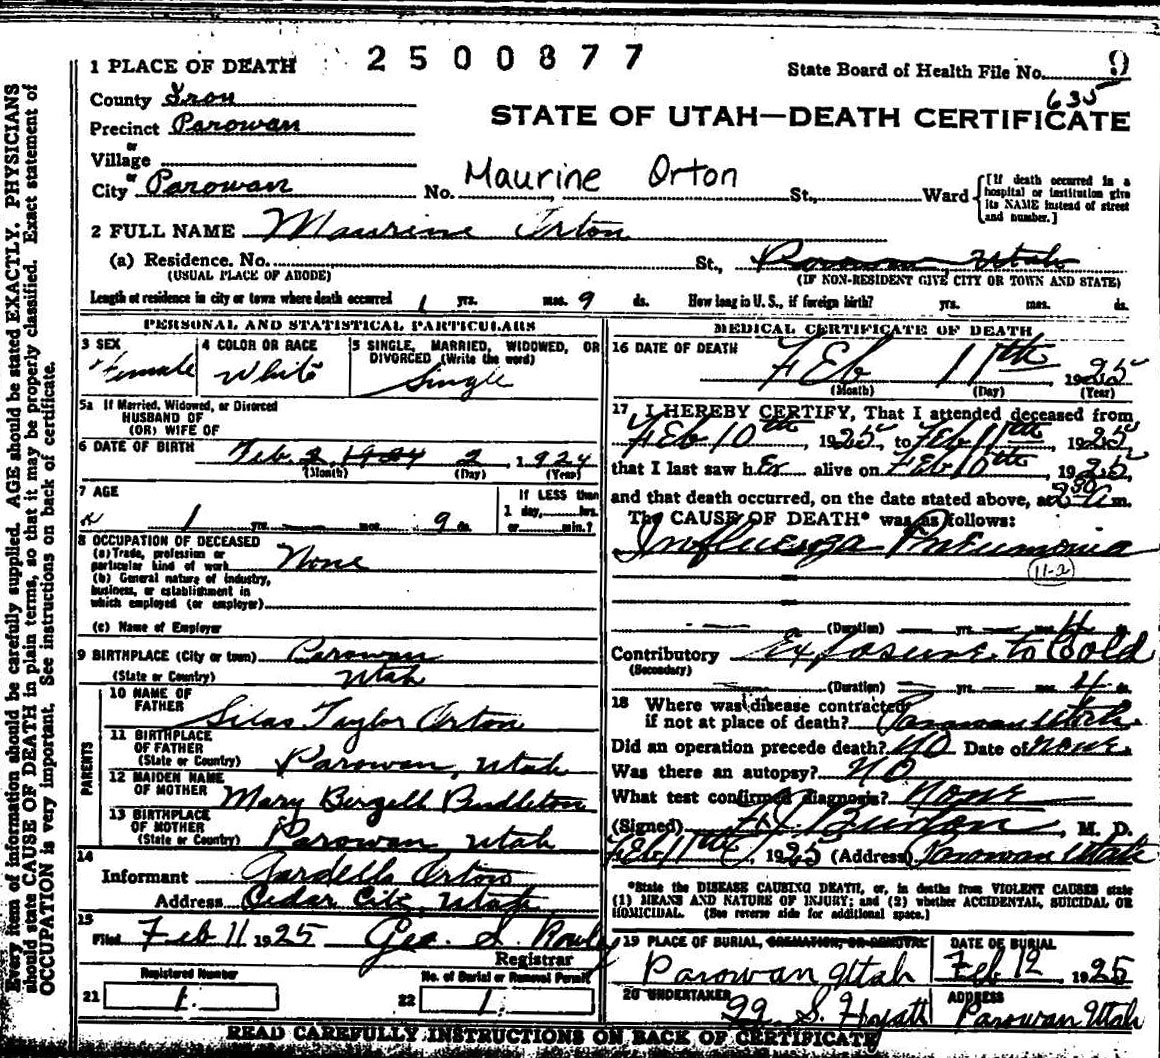 2500877
State Board of Health File No. 9
635
STATE OF UTAH—DEATH CERTIFICATE
1 PLACE OF DEATH
County Iron
Precinct Parowan
or
Village
or
City Parowan No. Maurine Orton St., Ward
[If death occurred in a hospital or institution give its NAME instead of street and number.]
2 FULL NAME Maurine Orton
(a) Residence. No. St., Parowan, Utah
(USUAL PLACE OF ABODE) (IF NON-RESIDENT GIVE CITY OR TOWN AND STATE)
Length of residence in city or town where death occurred 1 yrs. mos. 9 ds. How long in U. S., if foreign birth? yrs. mos. ds.
PERSONAL AND STATISTICAL PARTICULARS
3 SEX
Female
4 COLOR OR RACE
White
5 SINGLE, MARRIED, WIDOWED, OR DIVORCED (Write the word)
Single
5a If Married, Widowed, or Divorced
HUSBAND OF
(OR) WIFE OF
6 DATE OF BIRTH Feb. 2, 1924 2, 1924
(Month) (Day) (Year)
7 AGE
1 yrs. mos. 9 ds.
If LESS than
1 day, hrs.
or min.?
8 OCCUPATION OF DECEASED
(a) Trade, profession or
particular kind of work None
(b) General nature of industry,
business, or establishment in
which employed (or employer)
(c) Name of Employer
9 BIRTHPLACE (City or town) Parowan
(State or Country) Utah
PARENTS
10 NAME OF
FATHER Silas Taylor Orton
11 BIRTHPLACE
OF FATHER
(State or Country) Parowan, Utah
12 MAIDEN NAME
OF MOTHER Mary
13 BIRTHPLACE
OF MOTHER
(State or Country) Parowan, Utah
14
Informant Orton
Address Cedar City, Utah
15
Filed Feb 11 1925 Geo. S.
Registrar
Registered Number
21 1.
No. of Burial or Removal Permit
22 1.
MEDICAL CERTIFICATE OF DEATH
16 DATE OF DEATH
Feb 11th, 1925
(Month) (Day) (Year)
17 I HEREBY CERTIFY, That I attended deceased from
Feb 10th, 1925, to Feb 11th, 1925,
that I last saw her alive on Feb 10th, 1925,
and that death occurred, on the date stated above, at 2 30 A m.
The CAUSE OF DEATH* was as follows:
Influenza Pneumonia
11-2
(Duration) yrs. mos. 4 ds.
Contributory Exposure to Cold
(Secondary)
(Duration) yrs. mos. 4 ds.
18 Where was disease contracted
if not at place of death? Parowan Utah
Did an operation precede death? NO Date of none
Was there an autopsy? NO
What test confirmed diagnosis? None
(Signed) Burton, M. D.
Feb 11th, 1925 (Address) Parowan Utah
*State the DISEASE CAUSING DEATH, or, in deaths from VIOLENT CAUSES state
(1) MEANS AND NATURE OF INJURY; and (2) whether ACCIDENTAL, SUICIDAL OR
HOMICIDAL. (See reverse side for additional space.)
19 PLACE OF BURIAL, CREMATION, OR REMOVAL
Parowan Utah
DATE OF BURIAL
Feb 12 1925
20 UNDERTAKER
S. Hyatt
ADDRESS
Parowan Utah
READ CAREFULLY INSTRUCTIONS ON BACK OF CERTIFICATE
Every item of information should be carefully supplied. AGE should be stated EXACTLY. PHYSICIANS
should state CAUSE OF DEATH in plain terms, so that it may be properly classified. Exact statement of
OCCUPATION is very important. See instructions on back of certificate.